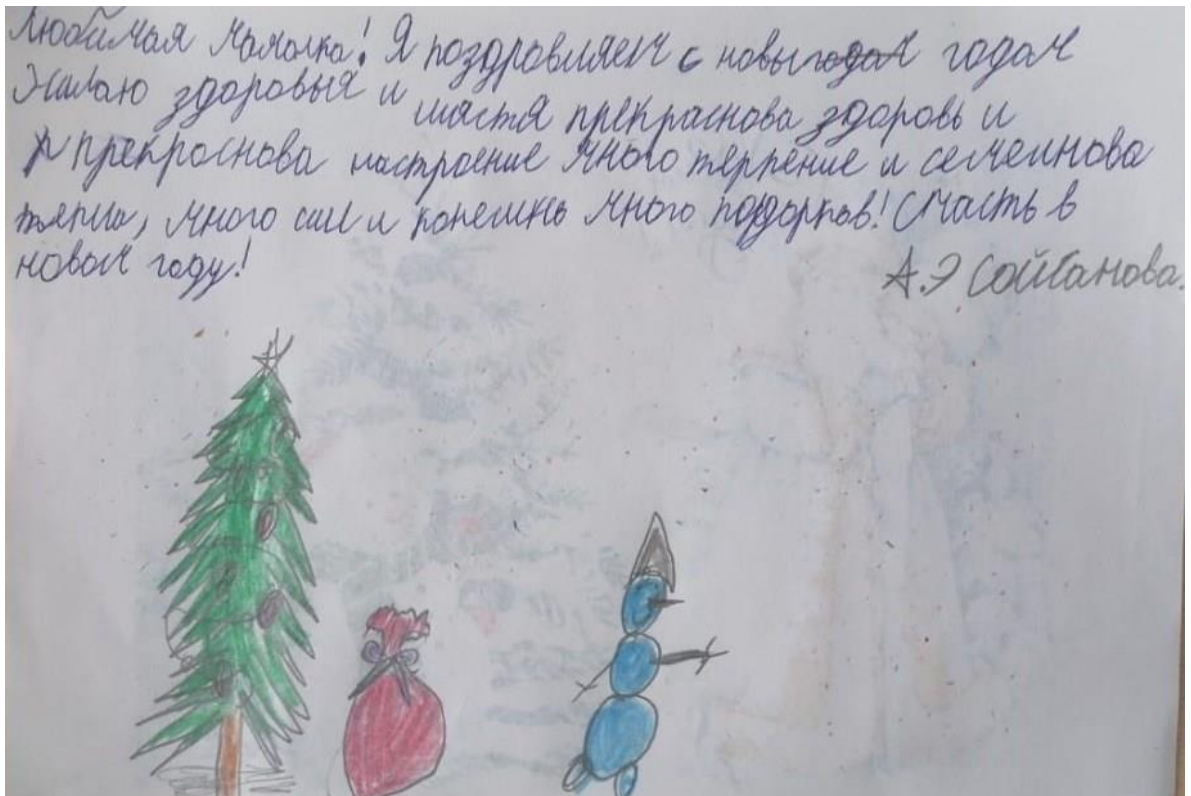 Любимая мамочка! Я поздровляем с новы годом годом
Желаю здоровья и шястя прекраснова здоровь и
прекроснова настроение много терпение и семеинова
тяпла, много сил и конешнь много подорков! Счасть в
новом году!
А.Э Сойбанова.